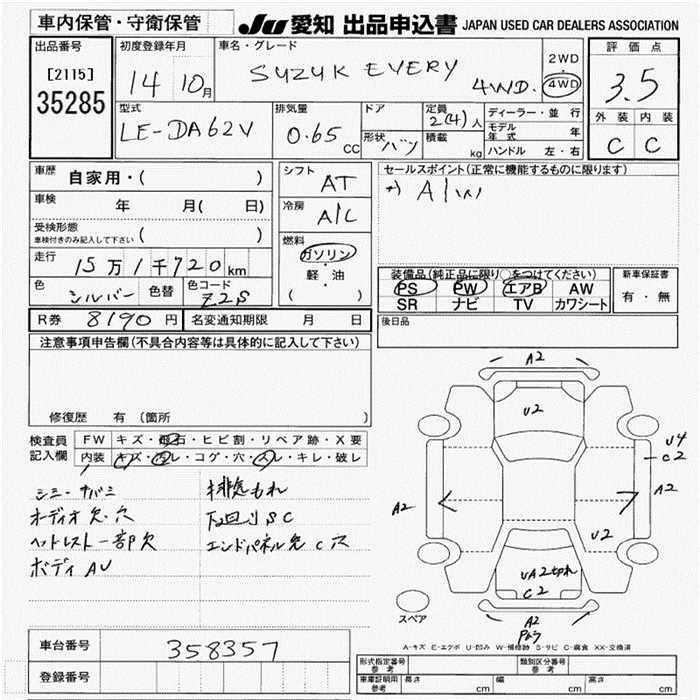 車内保管・守衛保管
JU 愛知 出品申込書 JAPAN USED CAR DEALERS ASSOCIATION
出品番号
[2115]
35285
初度登録年月
14年 10月
車名・グレード
SUZUK EVERY 4WD.
2WD
・
4WD
評価点
3.5
外装 内装
C C
型式
LE-DA62V
排気量
0.65 CC
ドア
形状 バン
定員
2(4)人
積載
kg
ディーラー・並行
モデル年式 年
ハンドル 左・右
車歴 自家用・( )
車検 年 月( 日)
受検形態
車検付きのみ記入して下さい ( )
走行 15万1千720km
色 シルバー 色替 色コード Z2S
シフト AT
冷房 A/C
燃料
ガソリン
・
軽・油
( )
セールスポイント(正常に機能するものに限ります)
装備品(純正品に限り○をつけてください)
PS PW エアB AW
SR ナビ TV カワシート
新車保証書
有・無
R券 8190円 名変通知期限 月 日
後日品
注意事項申告欄(不具合内容等は具体的に記入して下さい)
修復歴 有 (箇所 )
検査員
記入欄
FW キズ・飛石・ヒビ割・リペア跡・X要
内装 キズ・汚レ・コゲ・穴・スレ・キレ・破レ
オーディオ欠・穴
ヘットレスト一部欠
ボディ AU
排気もれ
下回り SC
エンドパネル C穴
A2
U2
U4
C2
A2
A2
U2
UA2切れ
C2
A2
スペア
A-キズ E-エクボ U-凹み W-補修跡 S-サビ C-腐食 XX-交換済
車台番号 358357
登録番号
形式指定番号
参考
類別区分番号
参考
車庫証明用
参考
長さ cm
幅 cm
高さ cm